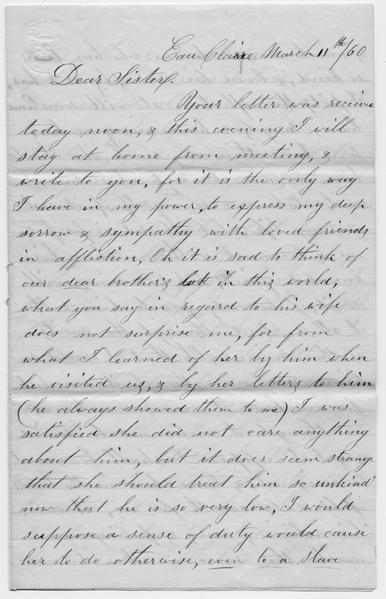 Eau Claire March 11th/60
Dear Sister.
Your letter was recieve
today noon, & this evening I will
stay at home from meeting, &
write to you, for it is the only way
I have in my power, to express my deep
sorrow & sympathy with loved friends
in affliction, Oh it is sad to think of
our dear brother's lot in this world,
what you say in regard to his wife
does not surprise me, for from
what I learned of her by him when
he visited us, & by her letters to him
(he always showed them to me) I was
satisfied she did not care anything
about him, but it does seem strange
that she should treat him so unkind
now that he is so very low, I would
suppose a sense of duty would cause
her to do otherwise, even to a slave